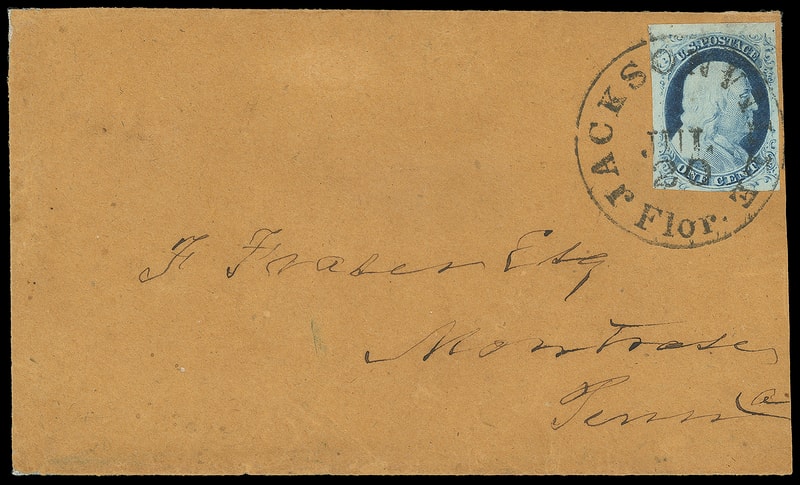 U.S. POSTAGE
ONE CENT
JACKSONVILLE
JUL
Flor.
F Fraser Esq
Montrose
Penna